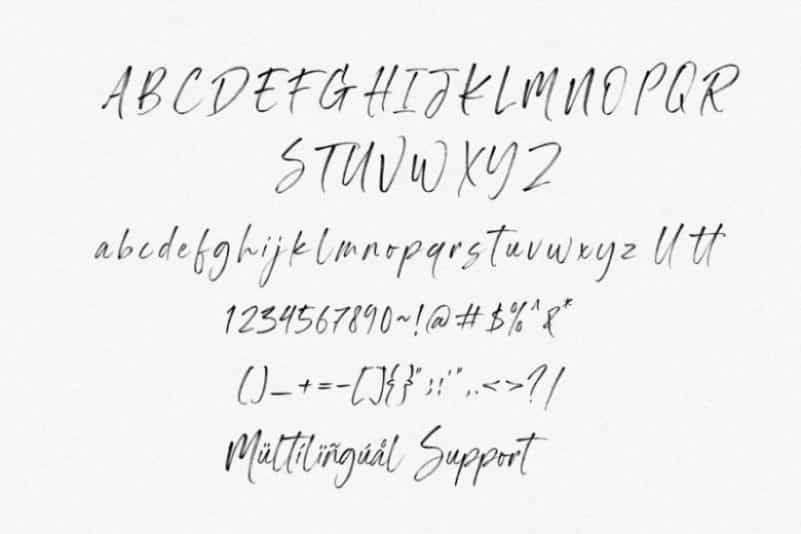 A B C D E F G H I J K L M N O P Q R
S T U V W X Y Z
a b c d e f g h i j k l m n o p q r s t u v w x y z ll tt
1 2 3 4 5 6 7 8 9 0 ~ ! @ # $ % ^ & *
( ) _ + = - [ ] { } " ; : ' " , . < > ? /
Mültilïñgúål Support